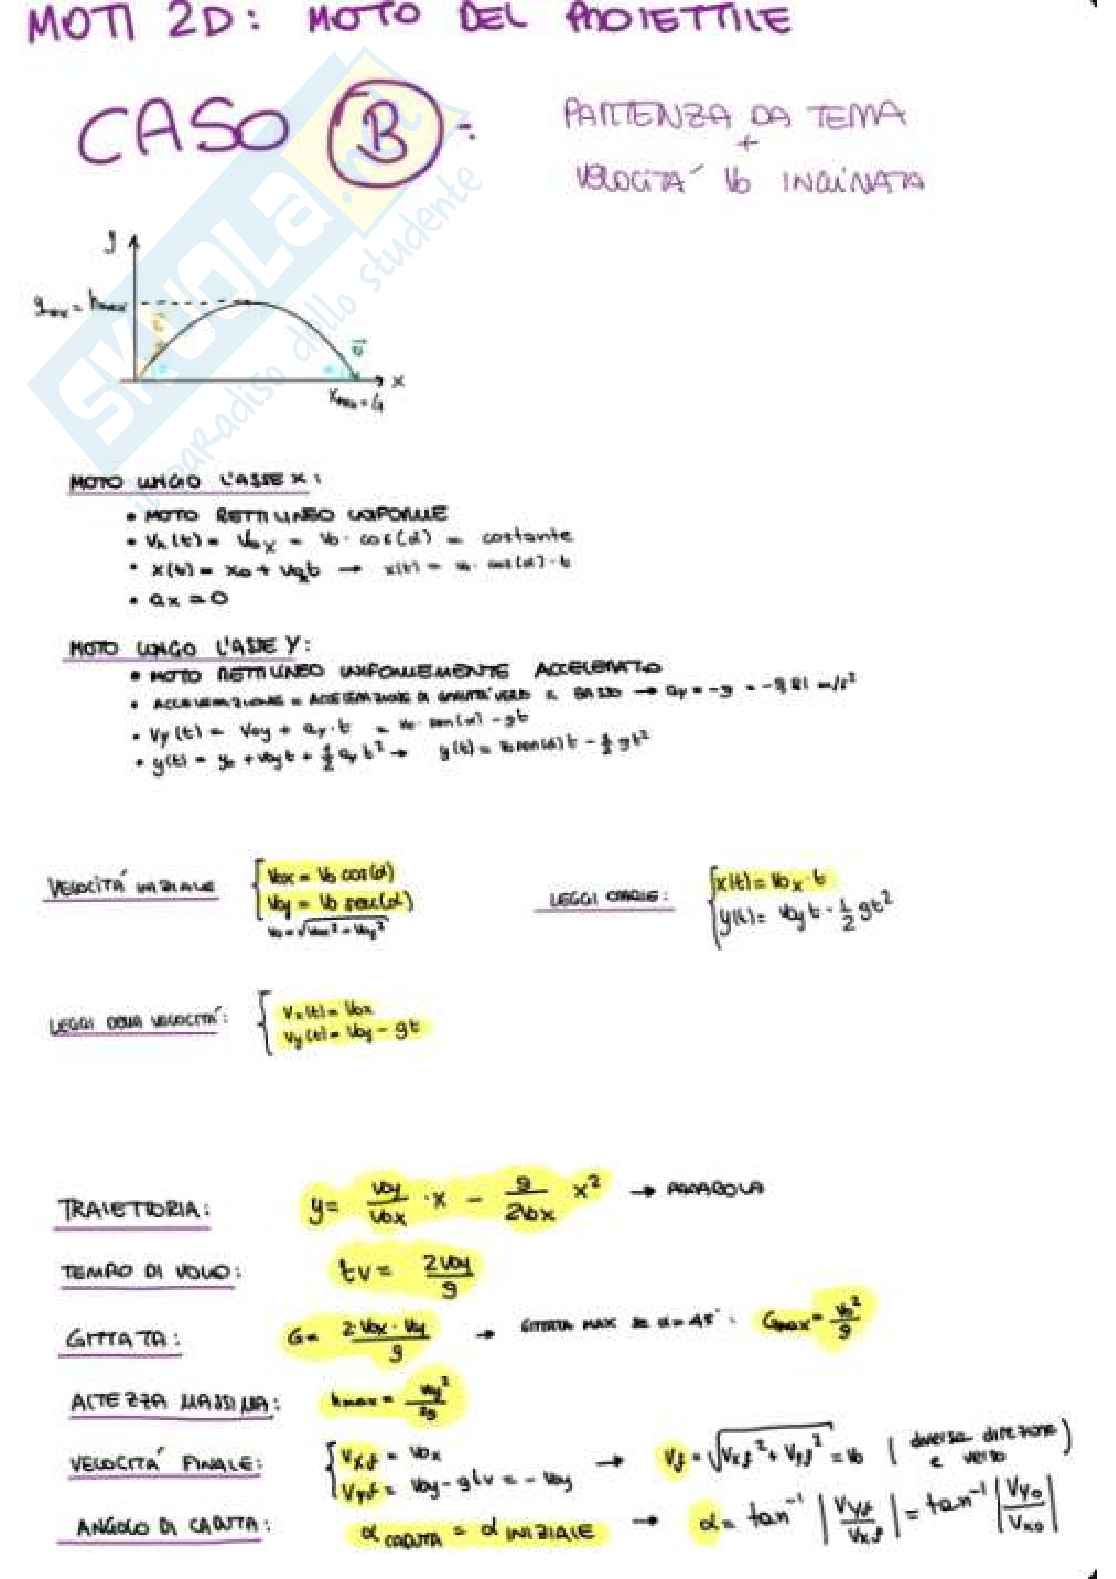 MOTI 2D: MOTO DEL PROIETTILE
CASO B:
PARTENZA DA TERRA
+
VELOCITÀ V0 INCLINATA
SKUOLA.net
il paradiso dello studente
y
ymax = hmax
x
xmax = G
MOTO LUNGO L'ASSE X:
• MOTO RETTILINEO UNIFORME
• Vx(t) = V0x = V0 · cos(α) = costante
• x(t) = x0 + V0xt → x(t) = v0 · cos(α) · t
• ax = 0
MOTO LUNGO L'ASSE Y:
• MOTO RETTILINEO UNIFORMEMENTE ACCELERATO
• ACCELERAZIONE = ACCELERAZIONE DI GRAVITÀ VERSO IL BASSO → ay = -g = -9,81 m/s²
• Vy(t) = V0y + ay · t = V0 · sen(α) - gt
• y(t) = y0 + V0yt + 1/2 ay t² → y(t) = V0 sen(α) t - 1/2 gt²
VELOCITÀ INIZIALE { V0x = V0 cos(α)
V0y = V0 sen(α)
V0 = √V0x² + V0y²
LEGGI ORARIE: { x(t) = V0x · t
y(t) = V0y t - 1/2 gt²
LEGGI DELLA VELOCITÀ: { Vx(t) = V0x
Vy(t) = V0y - gt
TRAIETTORIA: y = V0y/V0x · x - g/2V0x x² → PARABOLA
TEMPO DI VOLO: tv = 2V0y/g
GITTATA: G = 2·V0x·V0y/g → GITTATA MAX SE α = 45°: Gmax = V0²/g
ALTEZZA MASSIMA: hmax = V0y²/2g
VELOCITÀ FINALE: { Vxf = V0x
Vyf = V0y - gtv = - V0y
→ Vf = √Vxf² + Vyf² = V0 (diversa direzione e verso)
ANGOLO DI CADUTA: α CADUTA = α INIZIALE → α = tan⁻¹ |Vyf/Vxf| = tan⁻¹ |Vy0/Vx0|